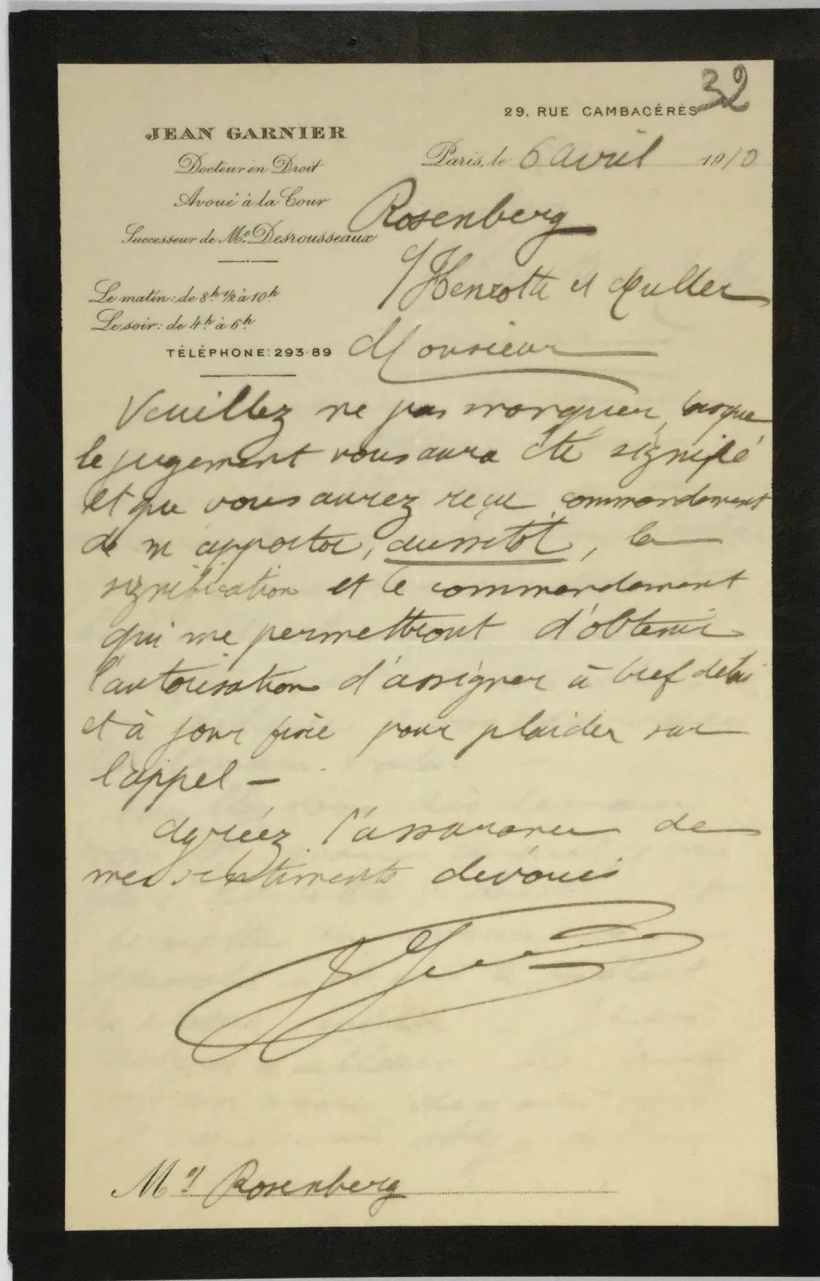 32
29, RUE CAMBACÉRÈS
JEAN GARNIER
Docteur en Droit
Avoué à la Cour
Successeur de Me Desrousseaux
Le matin: de 8h ½ à 10h
Le soir: de 4h à 6h
TÉLÉPHONE: 293-89
Paris, le 6 avril 1910
Rosenberg
c/ Henrotte et Muller
Monsieur
Veuillez ne pas manquer, lorsque
le jugement vous aura été signifié
et que vous aurez reçu commandement
de m'apporter, aussitôt, la
signification et le commandement
qui me permettront d'obtenir
l'autorisation d'assigner à bref délai
et à jour fixe pour plaider sur
l'appel —
Agréez l'assurance de
mes sentiments dévoués
Mr Rosenberg